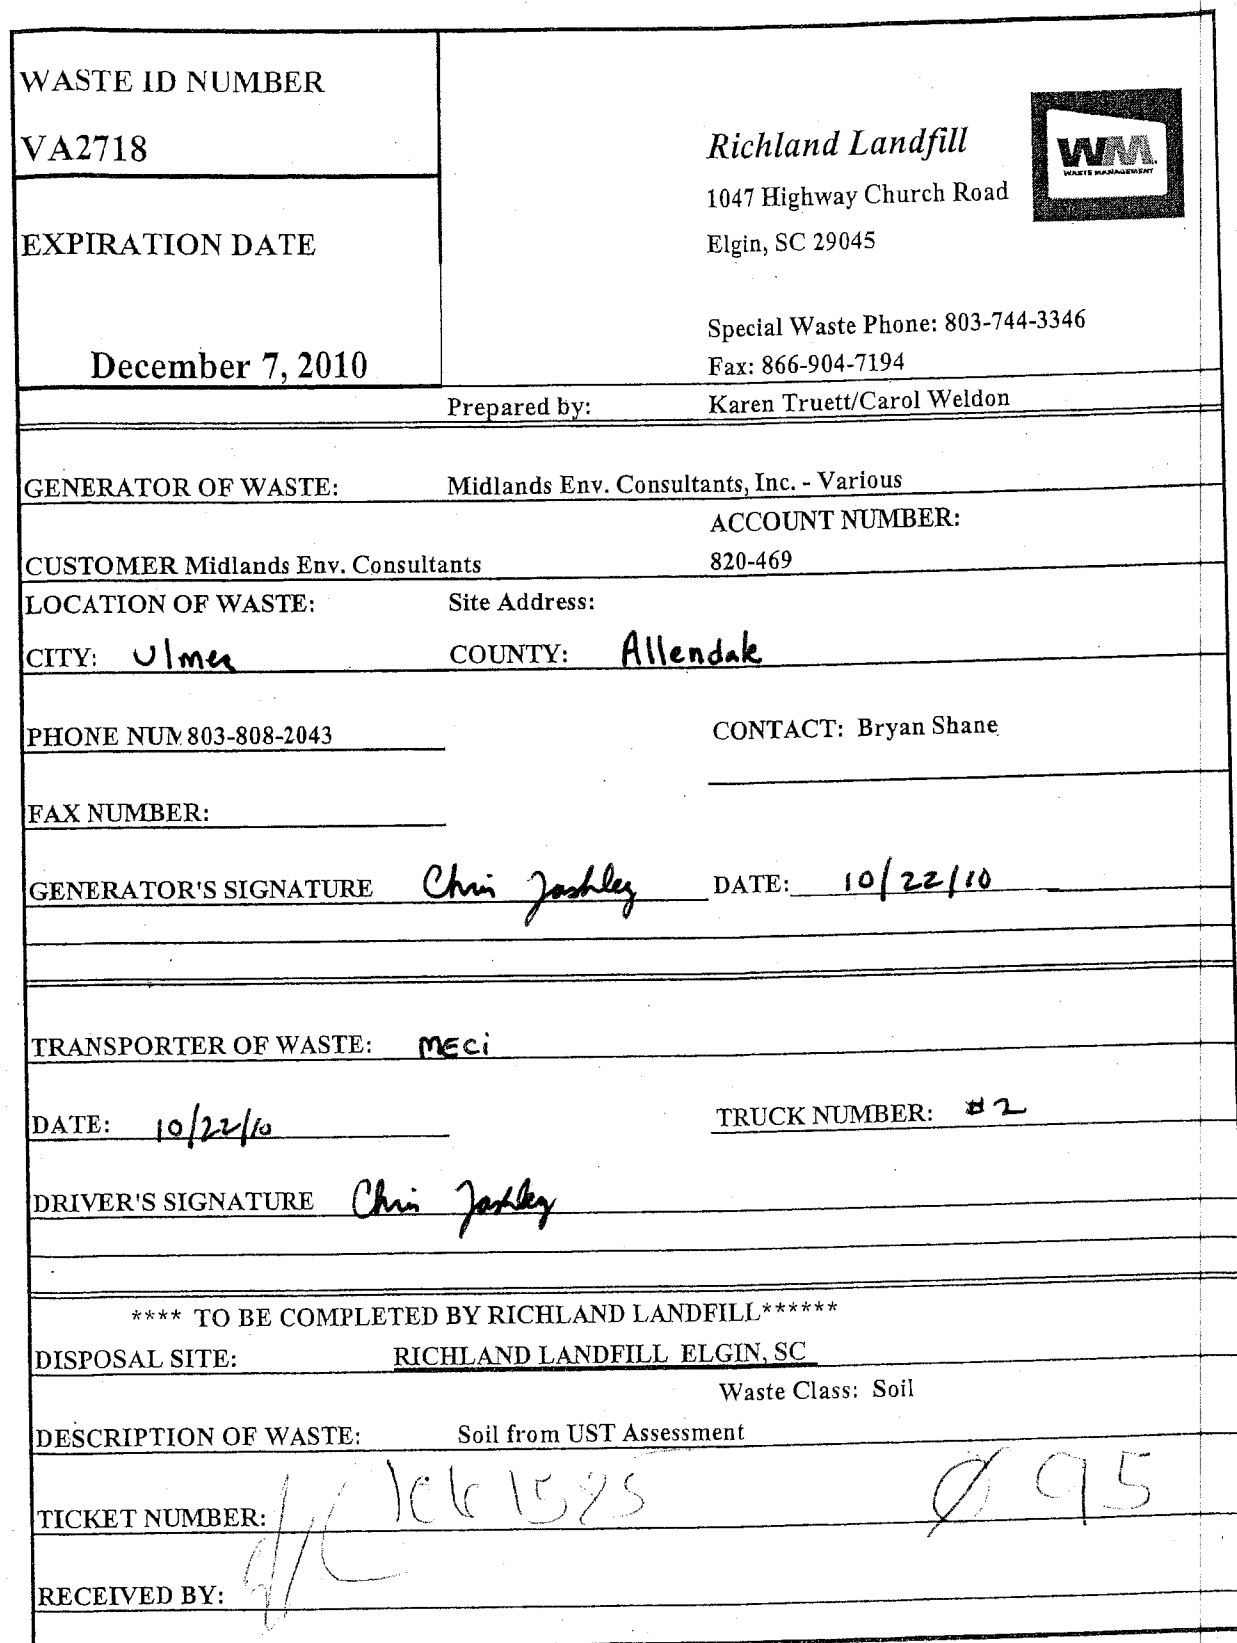 WASTE ID NUMBER
VA2718
EXPIRATION DATE
December 7, 2010
Richland Landfill
1047 Highway Church Road
Elgin, SC 29045
WM
WASTE MANAGEMENT
Special Waste Phone: 803-744-3346
Fax: 866-904-7194
Prepared by: Karen Truett/Carol Weldon
GENERATOR OF WASTE: Midlands Env. Consultants, Inc. - Various
ACCOUNT NUMBER:
CUSTOMER Midlands Env. Consultants 820-469
LOCATION OF WASTE: Site Address:
CITY: Ulmer COUNTY: Allendale
PHONE NUM 803-808-2043 CONTACT: Bryan Shane
FAX NUMBER:
GENERATOR'S SIGNATURE Chris DATE: 10/22/10
TRANSPORTER OF WASTE: MECi
DATE: 10/22/10 TRUCK NUMBER: #2
DRIVER'S SIGNATURE Chris
**** TO BE COMPLETED BY RICHLAND LANDFILL******
DISPOSAL SITE: RICHLAND LANDFILL ELGIN, SC
Waste Class: Soil
DESCRIPTION OF WASTE: Soil from UST Assessment
TICKET NUMBER:
RECEIVED BY: